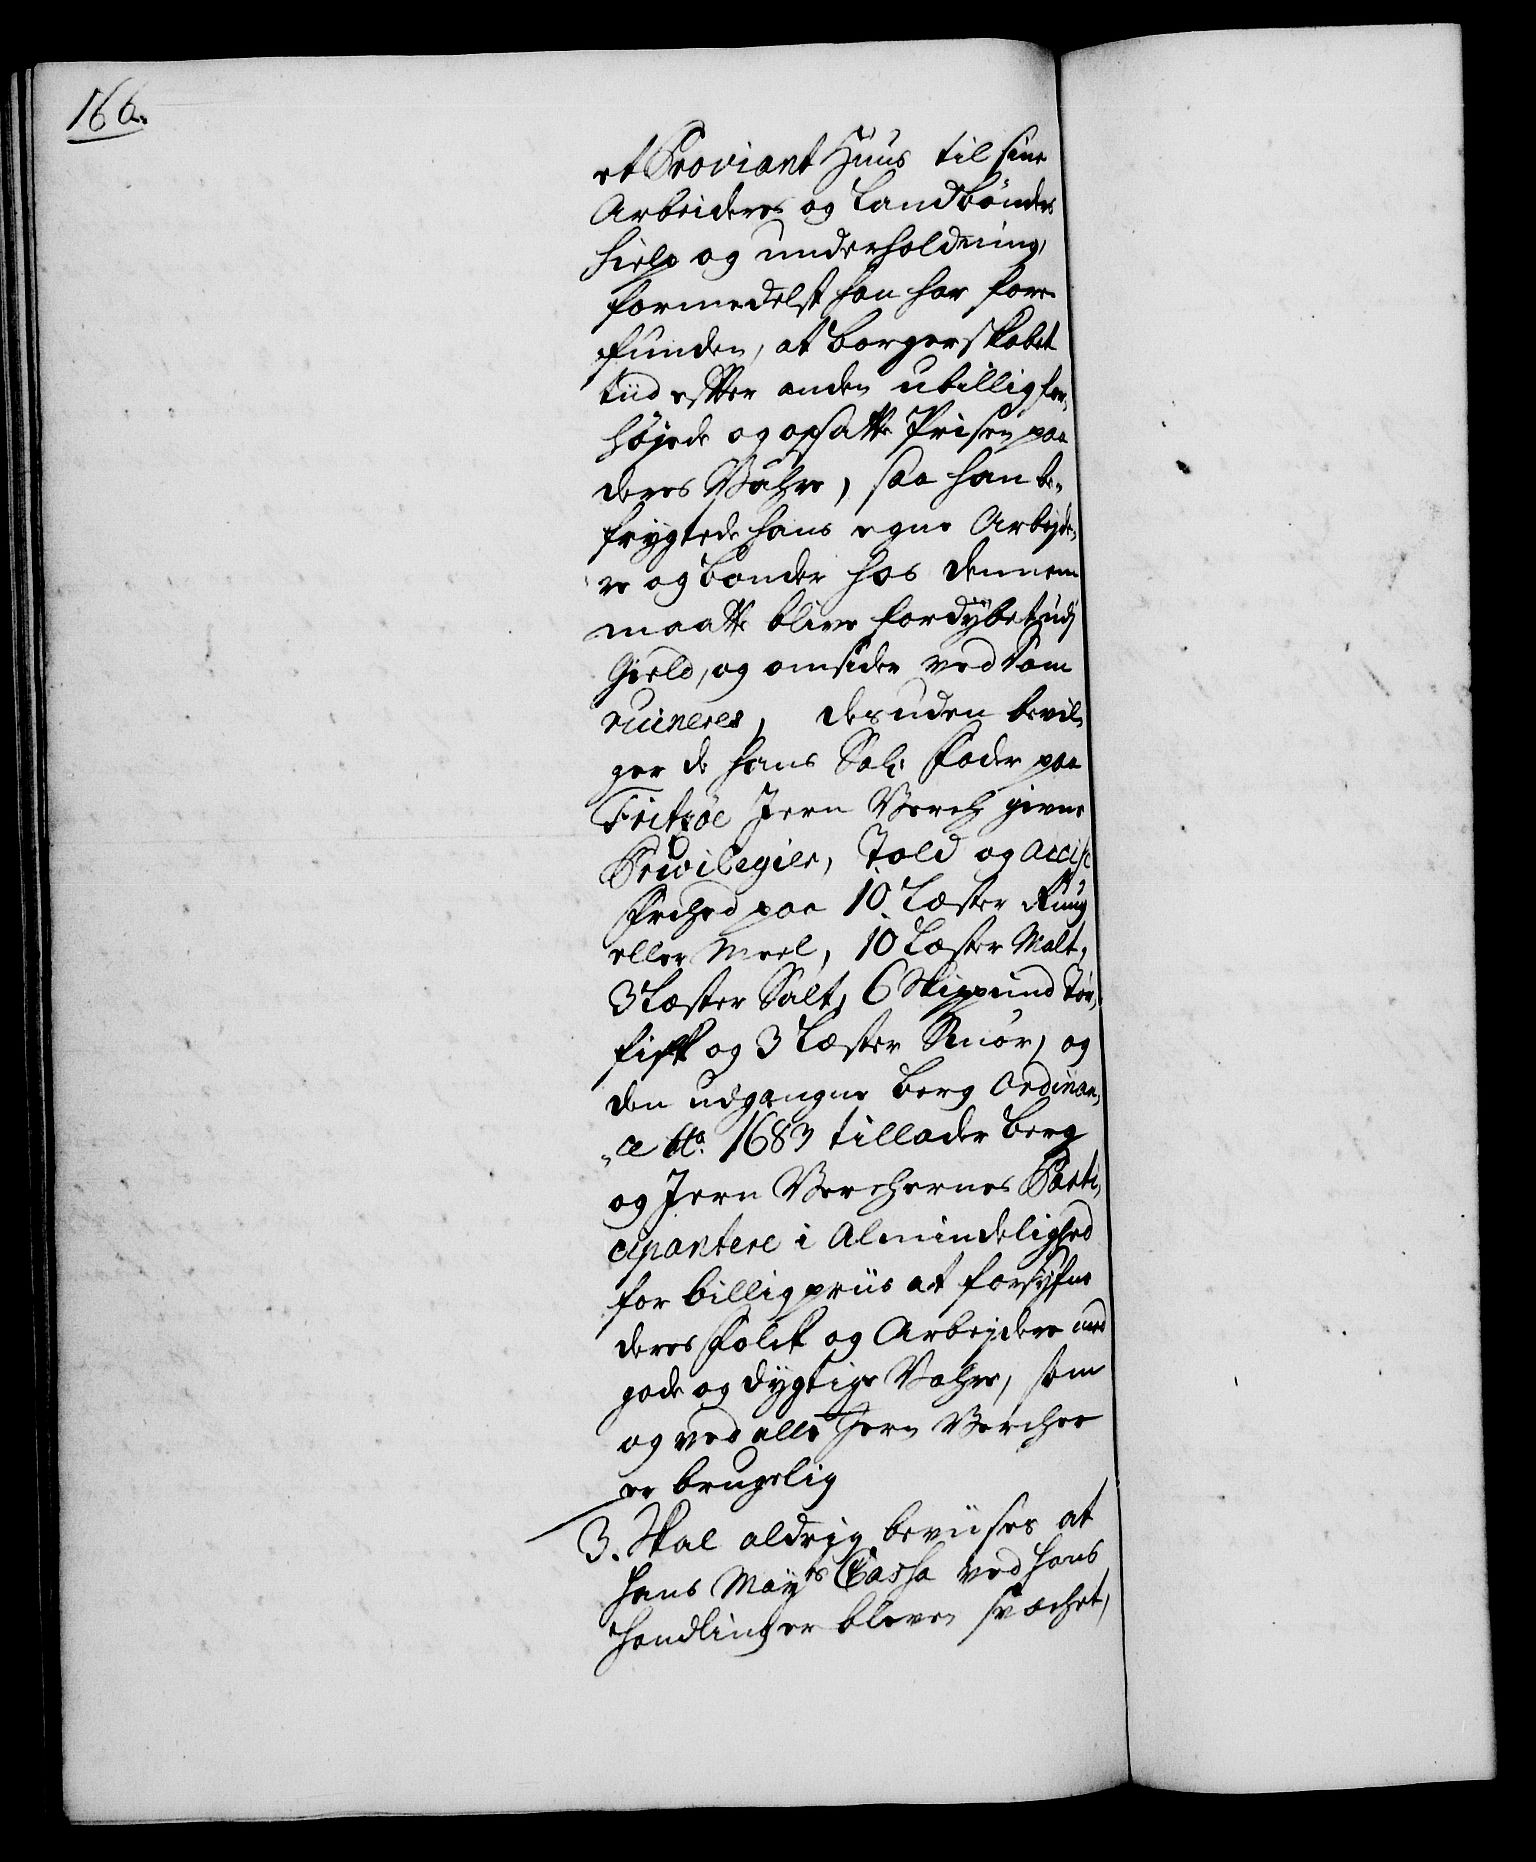 166.
et Proviant Huus til sine
Arbeideres og Landbönders
hielp og underholdning,
formedelst han har for-
funden, at borgerskabet
tiid efter anden ubillig for,
höyede og opsatte Prisen paa
deres Vahre, saa han be,
frygtede hans egne Arbejde,
re og bönder hos dennem
maatte blive fordybet udj
Gield, og omsider ved Dom
ruineres, desuden bevil,
ger de hans Sal: Fader paa
Fritzöe Jern Verch givne
Privilegier, Told og Accise
Frihed paa 10 Læster Rug
eller Meel, 10 Læster Malt,
3 Læster Salt, 6 Skippund Tör,
fisk og 3 Læster Smör, og
den udgangne berg Ordinan,
„ce Ao. 1683 tillader berg
og Jern Verchernes Parti,
cipantere i Almindelighed
for billig priis at forsyne
deres Folck og Arbejdere med
gode og dygtige Vahre, som
og ved alle Jern Vercher
er brugelig
3. Skal aldrig beviises at
Hans Mayts Cassa ved hans
Handling er bleven svæchet,